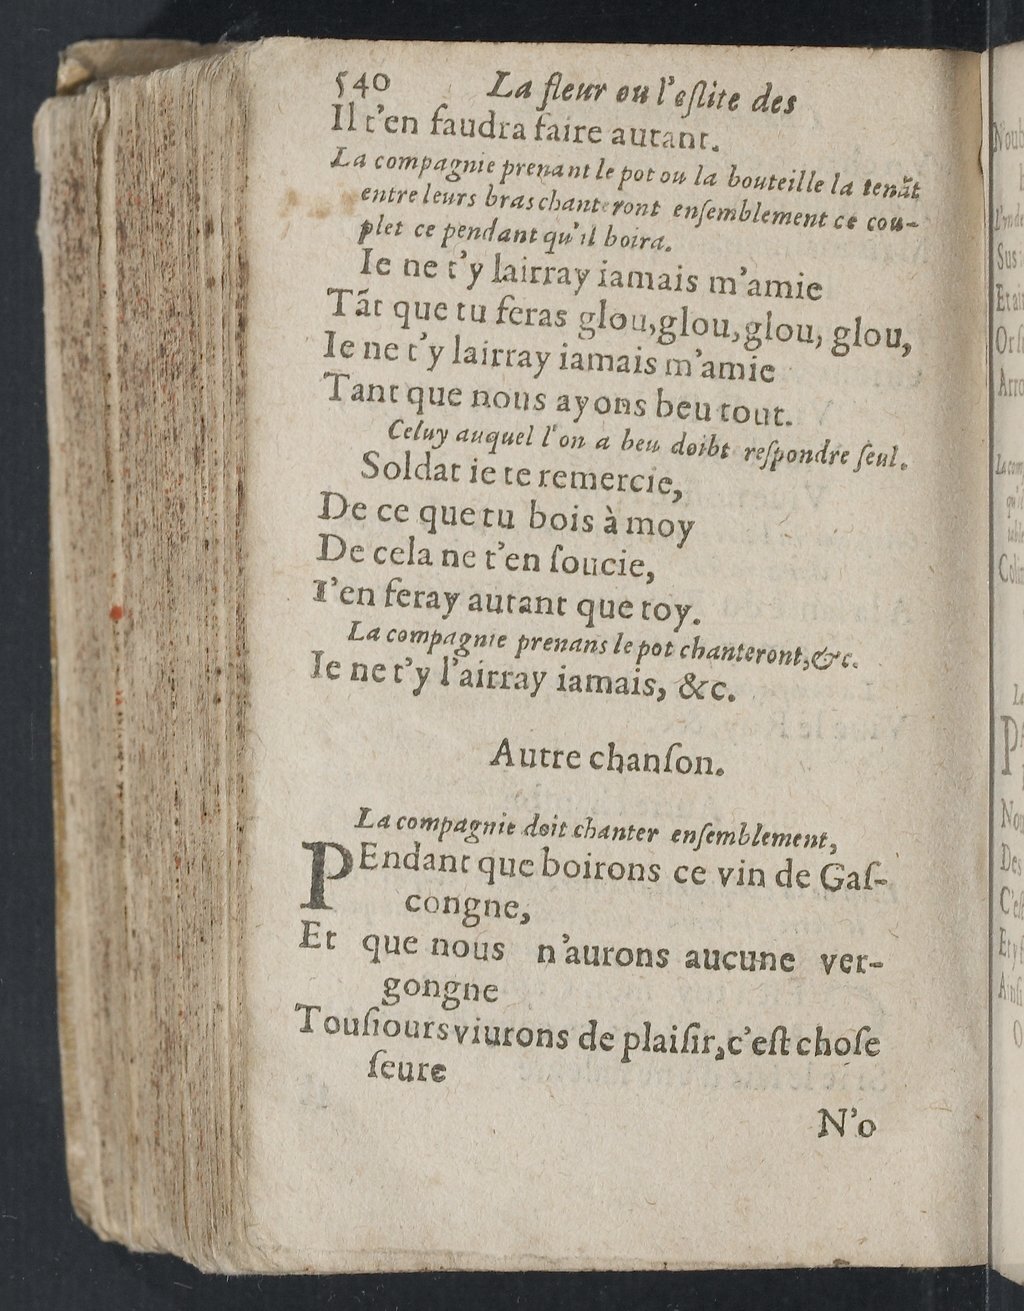 540 La fleur ou l'eſlite des
Il t'en faudra faire autant.
La compagnie prenant le pot ou la bouteille la tenãt
entre leurs bras chanteront enſemblement ce cou-
plet ce pendant qu'il boira.
Ie ne t'y lairray iamais m'amie
Tãt que tu feras glou, glou, glou, glou,
Ie ne t'y lairray iamais m'amie
Tant que nous ayons beu tout.
Celuy auquel l'on a beu doibt reſpondre ſeul.
Soldat ie te remercie,
De ce que tu bois à moy
De cela ne t'en ſoucie,
I'en feray autant que toy.
La compagnie prenans le pot chanteront, &c.
Ie ne t'y l'airray iamais, &c.
Autre chanſon.
La compagnie doit chanter enſemblement,
PEndant que boirons ce vin de Gaſ-
congne,
Et que nous n'aurons aucune ver-
gongne
Touſiours viurons de plaiſir, c'eſt choſe
ſeure
N'o